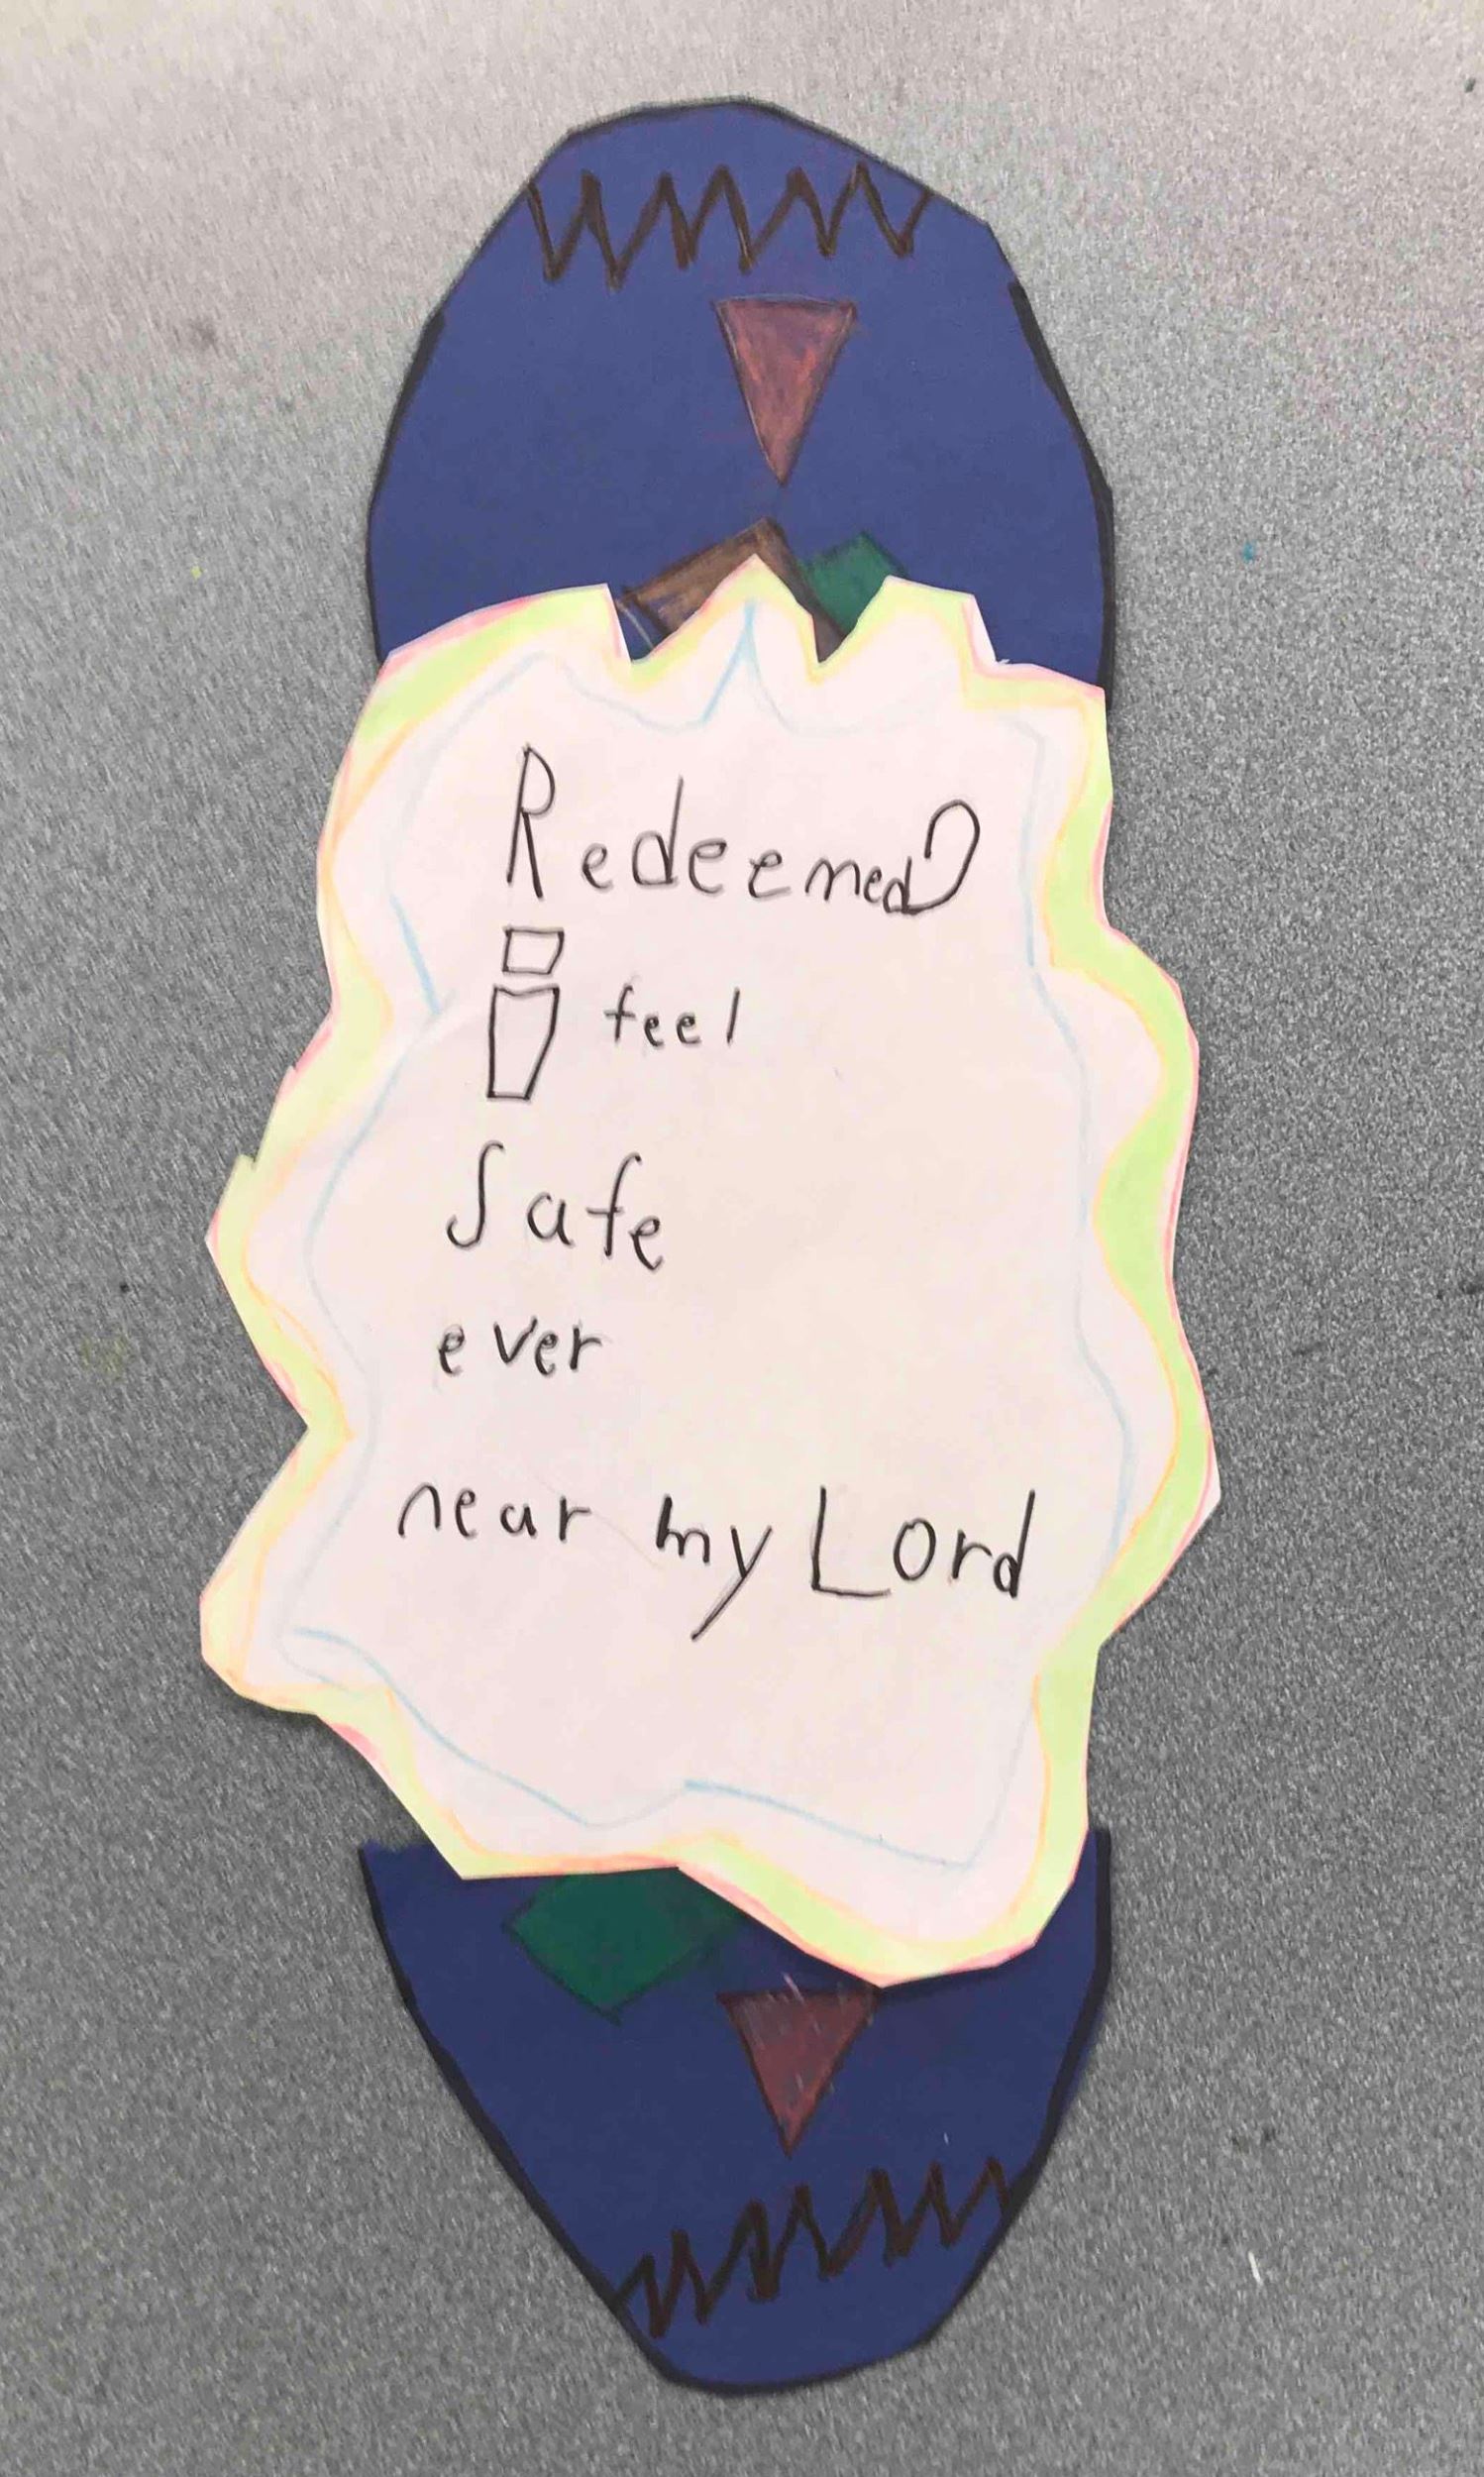 Redeemed
i feel
Safe
ever
near my Lord